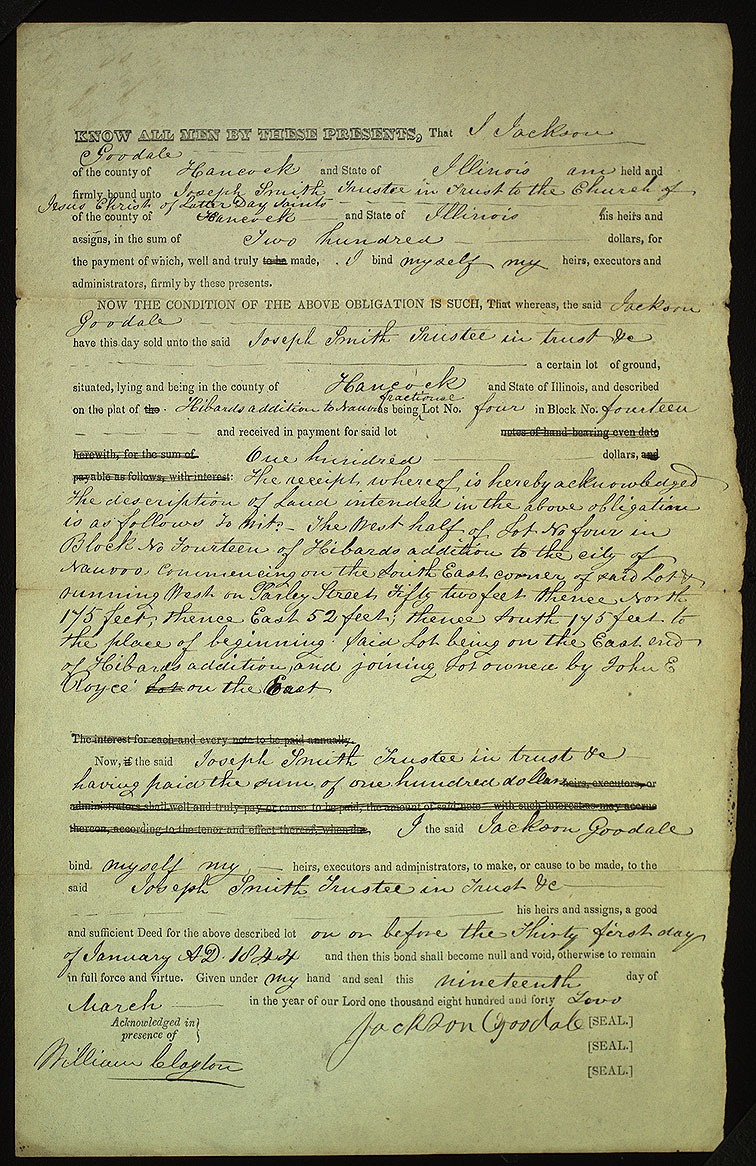 KNOW ALL MEN BY THESE PRESENTS, That I Jackson
Goodale
of the county of Hancock and State of Illinois am held and
firmly bound unto Joseph Smith Trustee in Trust to the Church of
Jesus Christ of Latter Day Saints
of the county of Hancock and State of Illinois his heirs and
assigns, in the sum of Two hundred dollars, for
the payment of which, well and truly to be made, I bind myself my heirs, executors and
administrators, firmly by these presents.
NOW THE CONDITION OF THE ABOVE OBLIGATION IS SUCH, That whereas, the said Jackson
Goodale
have this day sold unto the said Joseph Smith Trustee in trust &c
a certain lot of ground,
situated, lying and being in the county of Hancock and State of Illinois, and described
fractional
on the plat of the Hibards addition to Nauvoo as being Lot No. four in Block No. fourteen
and received in payment for said lot notes of hand bearing even date
herewith, for the sum of One hundred dollars, and
payable as follows, with interest: The receipt whereof is hereby acknowledged
The description of Land intended in the above obligation
is as follows To Wit, The West half of Lot No four in
Block No Fourteen of Hibards addition to the city of
Nauvoo, Commencing on the South East corner of said Lot &
running West on Parley Street Fifty two feet thence North
175 feet, thence East 52 feet; thence South 175 feet to
the place of beginning. Said Lot being on the East end
of Hibards addition, and joining Lot owned by John E
Royce Lot on the East
The interest for each and every note to be paid annually.
Now, if the said Joseph Smith Trustee in trust &c
having paid the sum of one hundred dollars heirs, executors, or
administrators shall well and truly pay or cause to be paid, the amount of said note with such interest as may accrue
thereon, according to the tenor and effect thereof, when due, I the said Jackson Goodale
bind myself my heirs, executors and administrators, to make, or cause to be made, to the
said Joseph Smith Trustee in Trust &c
his heirs and assigns, a good
and sufficient Deed for the above described lot on or before the Thirty first day
of January AD. 1844 and then this bond shall become null and void, otherwise to remain
in full force and virtue. Given under my hand and seal this nineteenth day of
March in the year of our Lord one thousand eight hundred and forty Two
Acknowledged in
presence of
Jackson Goodale [SEAL.]
[SEAL.]
William Clayton
[SEAL.]